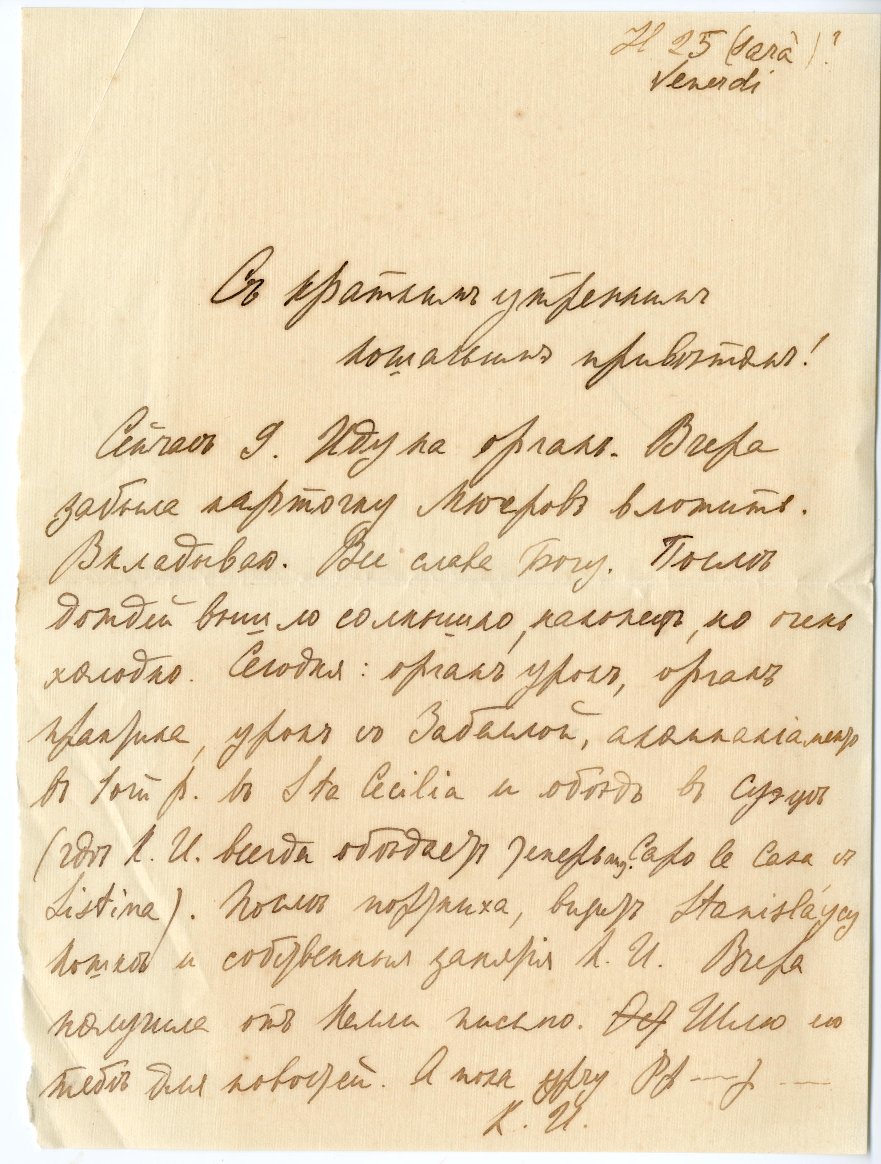 Il 25 (sarà)!
Venerdi
Съ краткимъ утреннимъ
кошачьимъ привѣтомъ!
Сейчасъ 9. Иду на органъ. Вчера
забыла карточку Мюеровъ вложить.
Вкладываю. Все слава Богу. Послѣ
дождей вышло солнышко, наконецъ, но очень
холодно. Сегодня: органъ урокъ, органъ
практика, урокъ со Забѣлой,
въ 1ой р. въ Sta Cecilia и обѣдъ въ
(гдѣ К. И. всегда обѣдаетъ теперь Capo le Case
Sistina). Послѣ портниха, визитъ
кошкѣ и собственныя занятія К. И. Вчера
получила отъ Нелли письмо. Шлю
тебѣ для новостей. А пока
К. И.